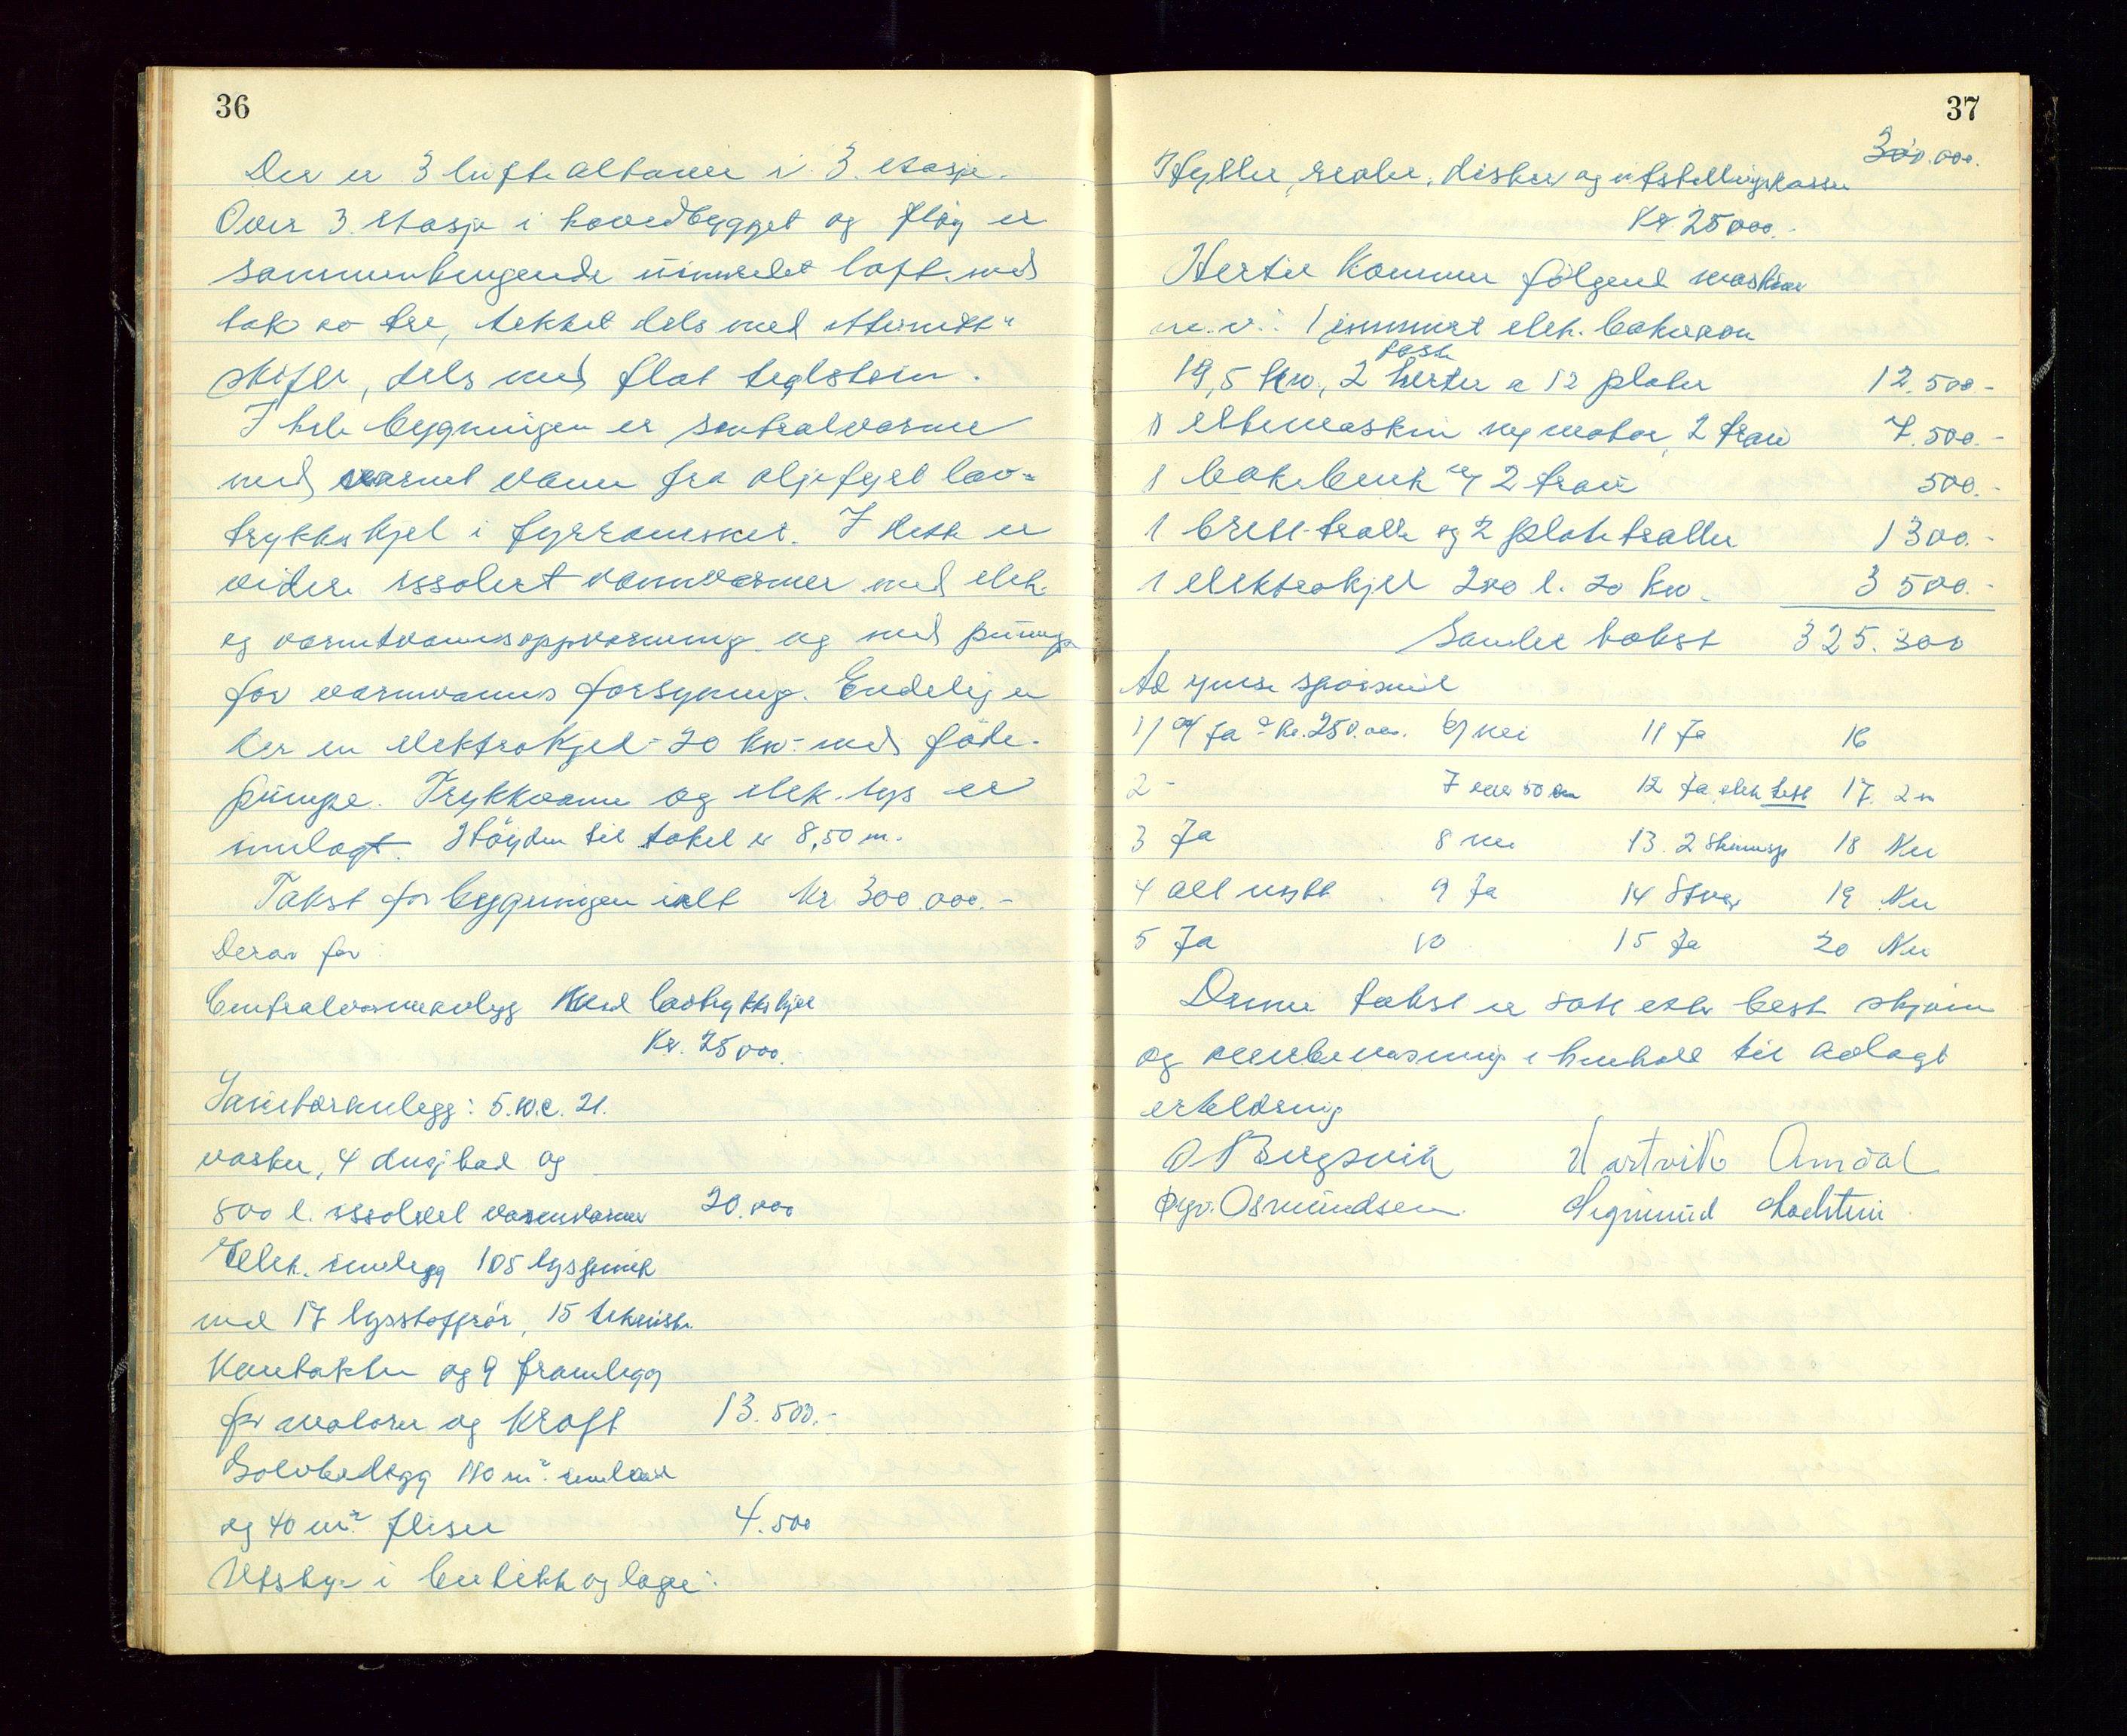 36
Der er 3 luftealtaner i 3. etasje.
Over 3. etasje i hovedbygget og fløy er
sammenhengende uinnredet loft med
tak av tre, tekket dels med etternitt"
skifer, dels med flat teglstein.
I hele bygningen er sentralvarme
med varmt vann fra oljefyrt lav-
trykkskjel i fyrrommet. I dette er
videre issolert vannvarmer med elek.
og varmtvannsoppvarming og med pumpe
for varmvanns forsyning. Endelig er
der en elektrokjel - 20 kw - med føde-
pumpe. Trykkvann og elek. lys er
innlagt. Høyden til taket er 8,50 m.
Takst for bygningen ialt Kr 300.000.-
Derav for:
Centralvarmeanlegg med lavtrykkskjel
Kr. 25000.-
Sanitæranlegg: 5. w.c. 21.
vasker, 4 dusjbad og
500 l. issolert varmvarmer 20.000
Elek. innlegg 105 lyspunk
med 17 lysstoffrør, 15 tekniske
Kontakter og 9 framlegg
for motorer og Kraft 13.500.-
Golvbelegg 110 m². innlaid
og 40 m² fliser 4.500
Utstyr i butikk og lager:
37
300.000.
Hyller, reoler, disker og utstillingskasser
Kr. 25000.-
Hertil kommer følgend maskiner
m.v.: 1 innmurt elek. bakerovn
19,5 kw., 2 herter a 12 plater 12.500.-
1 eltemaskin ny motor, 2 trau 7.500.-
1 bakebenk og 2 trau 500.-
1 brett-tralle og 2 platetraller 1300.-
1 elektrokjel 200 l. 20 kw. 3500.-
Samlet takst 325.300
Ad ymse spørsmål
1) a) Ja Kr. 250.000. 6) nei 11 Ja 16
2 - 7 over 50 cm 12 Ja, elek tett 17. 2 m
3 Ja 8 nei 13. 2 8 18 Nei
4 alt nytt 9 Ja 14 19 Nei
5 Ja 10 15 Ja 20 Nei
Denne takst er satt etter best skjønn
og overbevisning i henhold til avlagt
erklæring
O Bergsvik Hartvik Amdal
Osmundsen Sigmund